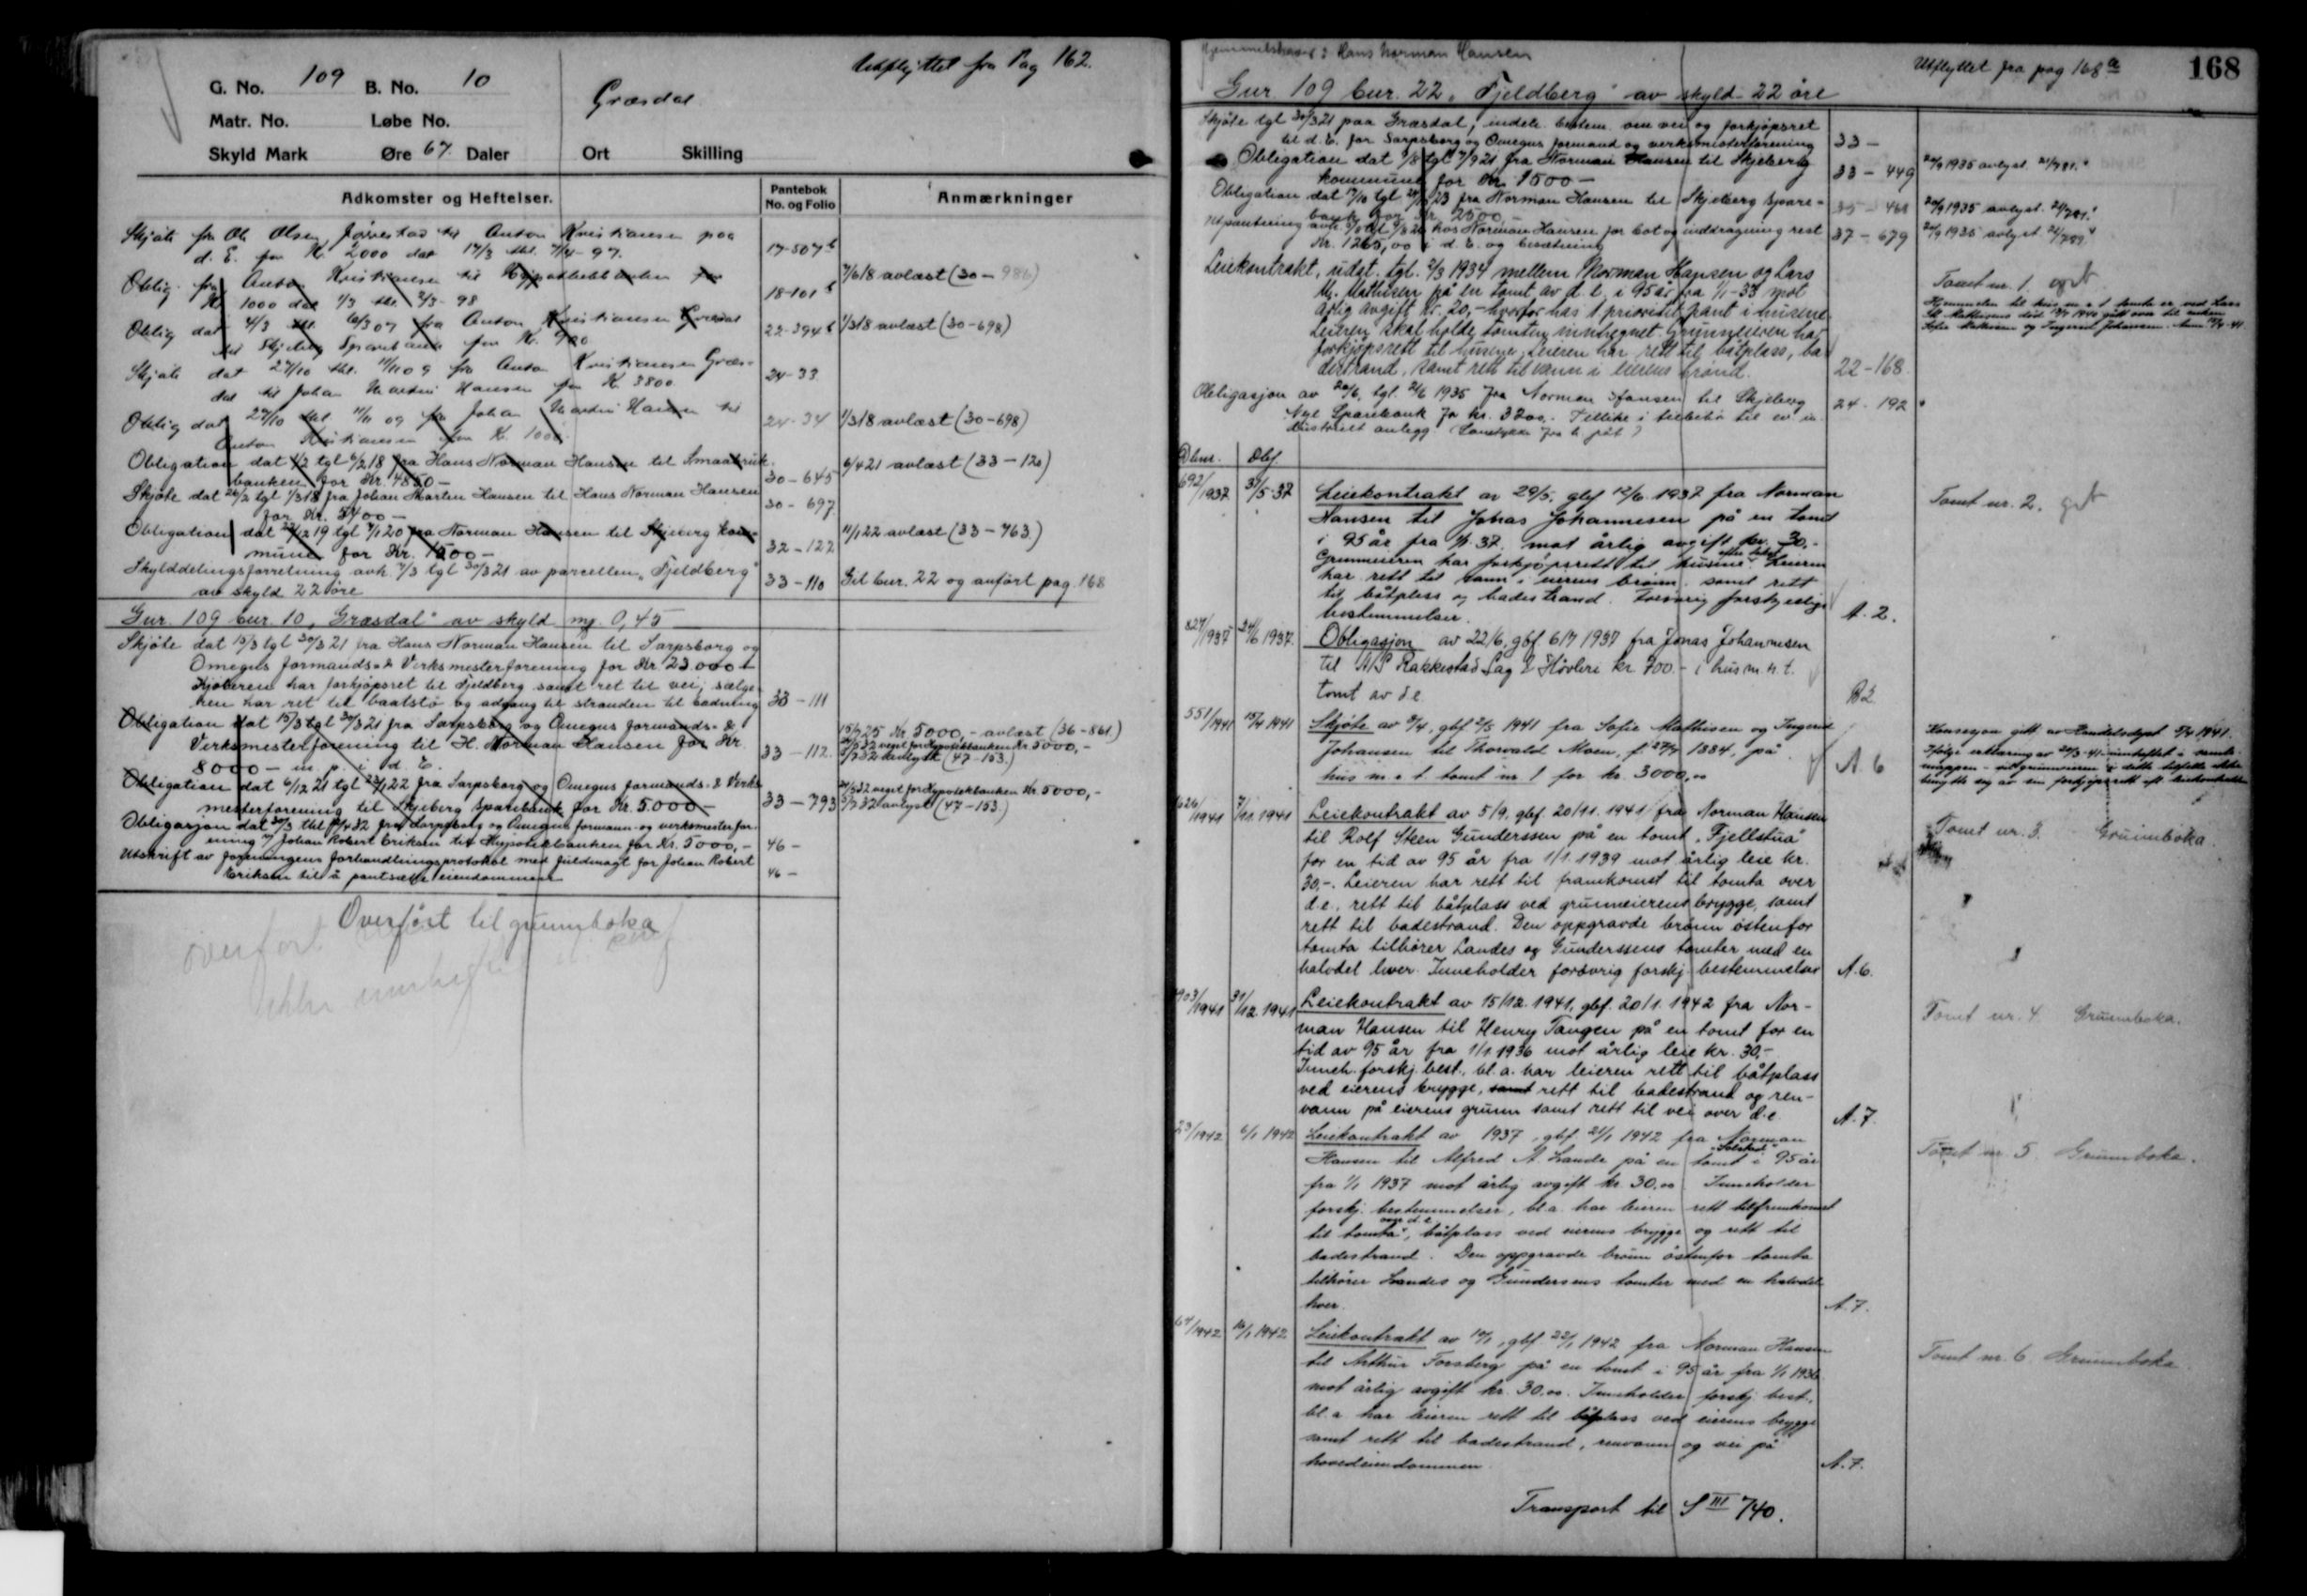 Utflyttet fra Pag 162.
G. No. 109 B. No. 10
Græsdal
Matr. No. Løbe No.
Skyld Mark Øre 67 Daler Ort Skilling
Adkomster og Heftelser. Pantebok No. og Folio Anmærkninger
Skjøte fra Ole Olsen Jørvestad til Anton Kristiansen paa
d. E. for K. 2000 dat 17/3 thl. 7/4-97. 17-507b
Oblig. fra Anton Kristiansen til Hypothekbanken for
K. 1000 dat 1/3 thl 2/3-98 18-101b 7/6 18 avlæst (30-986)
Oblig dat 4/3 thl. 6/3 07 fra Anton Kristiansen Græsdal
til Skjeberg Sparebank for K. 900 22-394b 1/3 18 avlæst (30-698)
Skjøte dat 27/10 thl. 11/11 09 fra Anton Kristiansen Græs-
dal til Johan Martin Hansen for K. 3800 24-33
Oblig dat 27/10 thl 11/11 09 fra Johan Martin Hansen til
Anton Kristiansen for K. 1000. 24-34 1/3 18 avlæst (30-698)
Obligation dat 1/2 tgl 6/2 18 fra Hans Norman Hansen til Smaabruk-
banken for Kr. 4850 - 30-645 6/4 21 avlæst (33-120)
Skjøte dat 26/2 tgl 1/3 18 fra Johan Martin Hansen til Hans Norman Hansen
for Kr. 5400 - 30-697
Obligation dat 29/12 19 tgl 9/1 20 fra Norman Hansen til Skjeberg kom-
mune for Kr. 1500 - 32-122 11/1 22 avlæst (33-763)
Skylddelingsforretning avh. 7/3 tgl 30/3 21 av parcellen "Fjeldberg"
av skyld 22 øre 33-110 Git bnr. 22 og anført pag. 168
Gnr. 109 bnr. 10, "Græsdal" av skyld mg. 0,45
Skjøte dat 15/3 tgl 30/3 21 fra Hans Norman Hansen til Sarpsborg og
Omegns formands- & Verksmesterforening for Kr 23.000 -
Kjøberen har forkjøpsret til Fjeldberg samt ret til vei, sælge-
ren har ret til baatstø og adgang til stranden til badning 33-111
Obligation dat 15/3 tgl 30/3 21 fra Sarpsborg og Omegns formands- &
Verksmesterforening til H. Norman Hansen for Kr.
8000 - m. p. i d. E. 33-112.
15/6 25 Kr. 5000,- avlæst (36-861)
veget for Hypotekbanken Kr. 5000,-
(47-153.)
Obligation dat 6/12 21 tgl 23/1 22 fra Sarpsborg og Omegns formands- & Verks-
mesterforening til Skjeberg sparebank for Kr. 5000 - 33-793
veget for Hypotekbanken Kr. 5000,-
avlyst (47-153)
Obligasjon dat 30/3 thl 12/4 32 fra Sarpsborg og Omegns formann- og verksmesterfor-
ening v/ Johan Robert Eriksen til Hypotekbanken for Kr. 5000,- 46-
Utskrift av foreningens forhandlingsprotokol med fuldmagt for Johan Robert
Eriksen til å pantsætte eiendommen 46-
Overført til grunnboka
overført
ikke
Hjemmelshaver: Hans Norman Hansen
Utflyttet fra pag 168a 168
Gnr. 109 bnr. 22 "Fjeldberg" av skyld 22 øre
Skjøte tgl 30/3 21 paa Græsdal, indeh. bestem. om vei og forkjøpsret
til d. E. for Sarpsborg og Omegns formand og verksmesterforening 33-
Obligation dat 1/8 tgl 7/9 21 fra Norman Hansen til Skjeberg
kommune for Kr. 1500 - 33-449 24/9 1935 avlyst.
Obligation dat 17/10 tgl 23 fra Norman Hansen til Skjeberg spare-
bank for Kr. 2500 - 35-461 24/9 1935 avlyst.
Utpantning avh. hos Norman Hansen for bot og inddragning rest
Kr. 1265,00 i d. E. og besætning 37-679 24/9 1935 avlyst.
Leiekontrakt, udat. tgl. 2/3 1934 mellem Norman Hansen og Lars
M. Mathisen på en tomt av d. e. i 95 år fra 1/1-33 mot
årlig avgift kr. 20,- hvorfor has 1 prioritet pant i husene.
Leieren skal holde tomten innhegnet. Grunneieren har
forkjøpsrett til husene. Leieren har rett til båtplass, ba-
destrand, samt rett til vann i eierens brønd. 22-168.
Tomt nr. 1. grb
Hjemmelen til hus m. v. t. tomta er ved Lars
M. Mathisens død 1940 gått over til enken
Sofie Mathisen og Ingrid Johansen.
Obligasjon av 20/6, tgl. 21/6 1935 fra Norman Hansen til Skjeberg
Nye Sparebank for kr. 3200,- Tillike i tilbehør til ev. in-
dustrielt anlegg. 24-192
Dbnr. Dbf.
692/1937 31/5-37 Leiekontrakt av 29/5, gbf 12/6 1937 fra Norman
Hansen til Johas Johannesen på en tomt
i 95 år fra 1/1-37. mot årlig avgift kr. 30,-
Grunneieren har forkjøpsrett til husene. Leieren
har rett til vann i eierens brønn, samt rett
til båtplass og badestrand. Forøvrig forskjellige
bestemmelser. A. 2.
Tomt nr. 2. grb
827/1937 24/6 1937. Obligasjon av 22/6, gbf 6/7 1937 fra Jonas Johannesen
til A/S Rakkestad Sag & Høvleri kr. 700.- i hus m. n. t.
tomt av d. e. B2
551/1941 15/4 1941 Skjøte av 8/4, gbf 2/5 1941 fra Sofie Mathisen og Ingrid
Johansen til Thorvald Moen, f. 27/7 1884, på
hus m. v. t. tomt nr 1 for kr. 3000,00 A. 6
1626/1941 7/11 1941 Leiekontrakt av 5/9, gbf. 20/11. 1941 fra Norman Hansen
til Rolf Steen Gunderssen på en tomt "Fjellstua"
for en tid av 95 år fra 1/1.1939 mot årlig leie kr.
30,-. Leieren har rett til framkomst til tomta over
d. e., rett til båtplass ved grunneierens brygge, samt
rett til badestrand. Den oppgravde brønn østenfor
tomta tilhører Landes og Gunderssens tomter med en
halvdel hver. Inneholder forøvrig forskj. bestemmelser A. 6.
Tomt nr. 3. Grunnboka.
1903/1941 31/12 1941 Leiekontrakt av 15/12. 1941, gbf. 20/1. 1942 fra Nor-
man Hansen til Henry Tangen på en tomt for en
tid av 95 år fra 1/1.1936 mot årlig leie kr. 30,-
Inneh. forskj. best., bl. a. har leieren rett til båtplass
ved eierens brygge, samt rett til badestrand og ren-
vann på eierens grunn samt rett til vei over d. e. A. 7.
Tomt nr. 4 Grunnboka.
23/1942 6/1 1942 Leiekontrakt av 1937, gbf 21/1 1942 fra Norman
Hansen til Alfred A. Lande på en tomt "Solstad" i 95 år
fra 1/1 1937 mot årlig avgift kr. 30,00. Inneholder
forskj. bestemmelser, bl. a. har leieren rett til framkomst
til tomta over d. e., båtplass ved eierens brygge og rett til
badestrand. Den oppgravde brønn østenfor tomta
tilhører Landes og Gundersens tomter med en halvdel
hver. A. 7.
Tomt nr. 5. Grunnboka.
64/1942 16/1 1942 Leiekontrakt av 10/1, gbf 22/1 1942 fra Norman Hansen
til Arthur Forsberg på en tomt i 95 år fra 1/1 1936
mot årlig avgift kr. 30,00. Inneholder forskj. best.,
bl. a. har leieren rett til båtplass ved eierens brygge
samt rett til badestrand, renvann og vei på
hovedeiendommen. A. 7.
Tomt nr. 6 Grunnboka
Transport til S III 740.